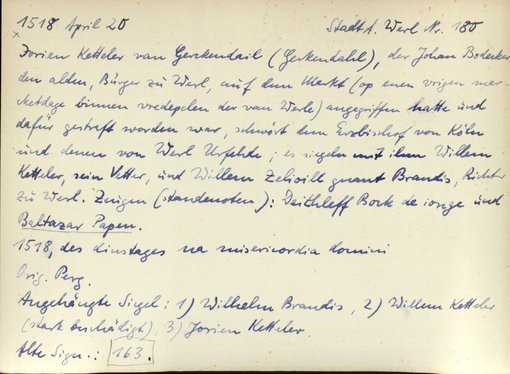 1518 April 20 Stadt A. Werl Nr. 180
x
Jorien Ketteler van Gerckendail (Gerkendahl), der Johan Bodecker
den alden, Bürger zu Werl, auf dem Markt (op enen vrigen mar-
ketdage binnen vredepelen der van Werle) angegriffen hatte und
dafür gestraft worden war, schwört dem Erzbischof von Köln
und denen von Werl Urfehde; es siegeln mit ihm Willem
Ketteler, sein Vetter, und Willem genant Brandis, Richter
zu Werl. Zeugen (standenoten): Deithleff Bock de ionge und
Baltazar Papen.
1518, des dinstages na misericordia domini
Orig. Perg.
Angehängte Siegel: 1) Wilhelm Brandis, 2) Willem Ketteler
(stark beschädigt), 3) Jorien Ketteler.
Alte Sign.: 163.